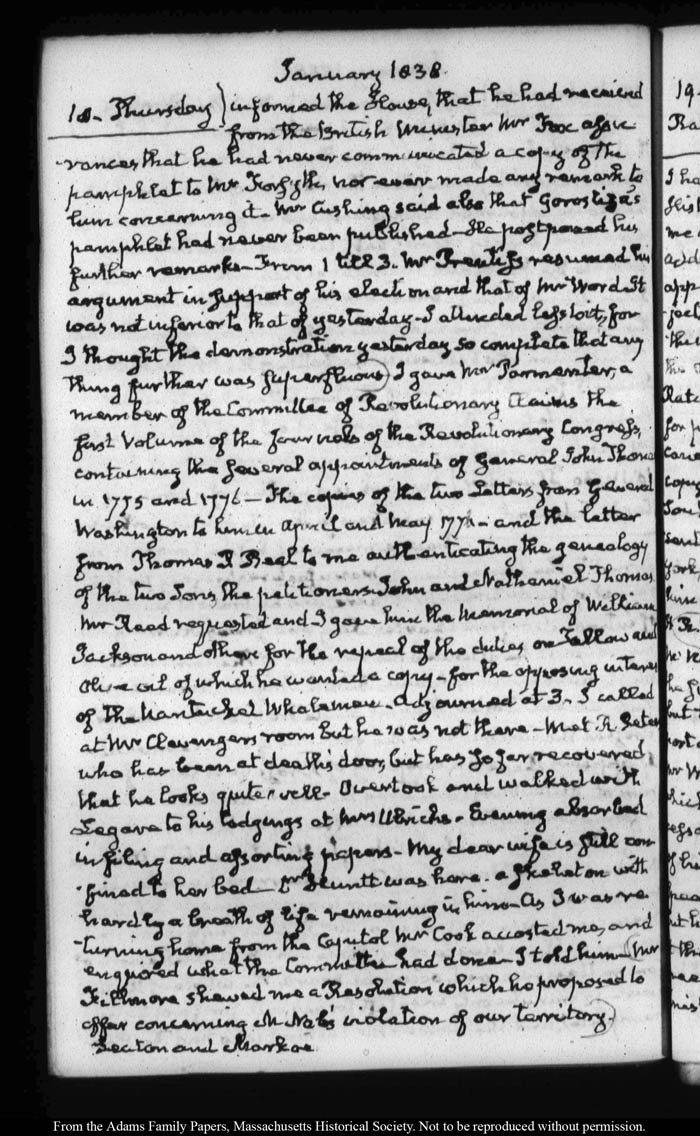 January 1838.
18. Thursday) informed the House, that he had received
from the British Minister Mr Fox assu-
-rances that he had never communicated a copy of the
pamphlet to Mr Forsyth, nor ever made any remark to
him concerning it. Mr Cushing said also that Gorostiza's
pamphlet had never been published. He postponed his
further remarks. From 1 till 3. Mr Prentiss resumed his
argument in support of his election and that of Mr Word. It
was not inferior to that of yesterday. I attended less to it, for
I thought the demonstration yesterday so complete that any
thing further was superfluous) I gave Mr Parmenter, a
member of the Committee of Revolutionary Claims the
first Volume of the Journals of the Revolutionary Congress,
containing the several appointments of General John Thomas
in 1775 and 1776 — The copies of the two Letters from General
Washington to him in April and May 1776 — and the letter
from Thomas to me authenticating the genealogy
of the two Sons the petitioners John and Nathaniel Thomas
Mr Reed requested and I gave him the Memorial of William
Jackson and others for the repeal of the duties on Tallow and
Olive oil of which he wanted a copy — for the opposing interest
of the Nantucket Whalemen. Adjourned at 3. I called
at Mr Clevengers room but he was not there — Met R
who has been at death's door, but has so far recovered
that he looks quite well. Overtook and walked with
Legare to his lodgings at Mrs Ulrichs. Evening absorbed
in filing and assorting papers — My dear wife is still con-
-fined to her bed — Dr Huntt was here. a skeleton with
hardly a breath of life remaining in him — As I was re-
-turning home from the Capitol Mr Cook accosted me, and
enquired what the Committee had done — I told him (Mr
Fillmore shewed me a Resolution which he proposed to
offer concerning McNab's violation of our territory.)
Seaton and Markoe.
19.
I ha
me
app
for
copy
York
him
From the Adams Family Papers, Massachusetts Historical Society. Not to be reproduced without permission.